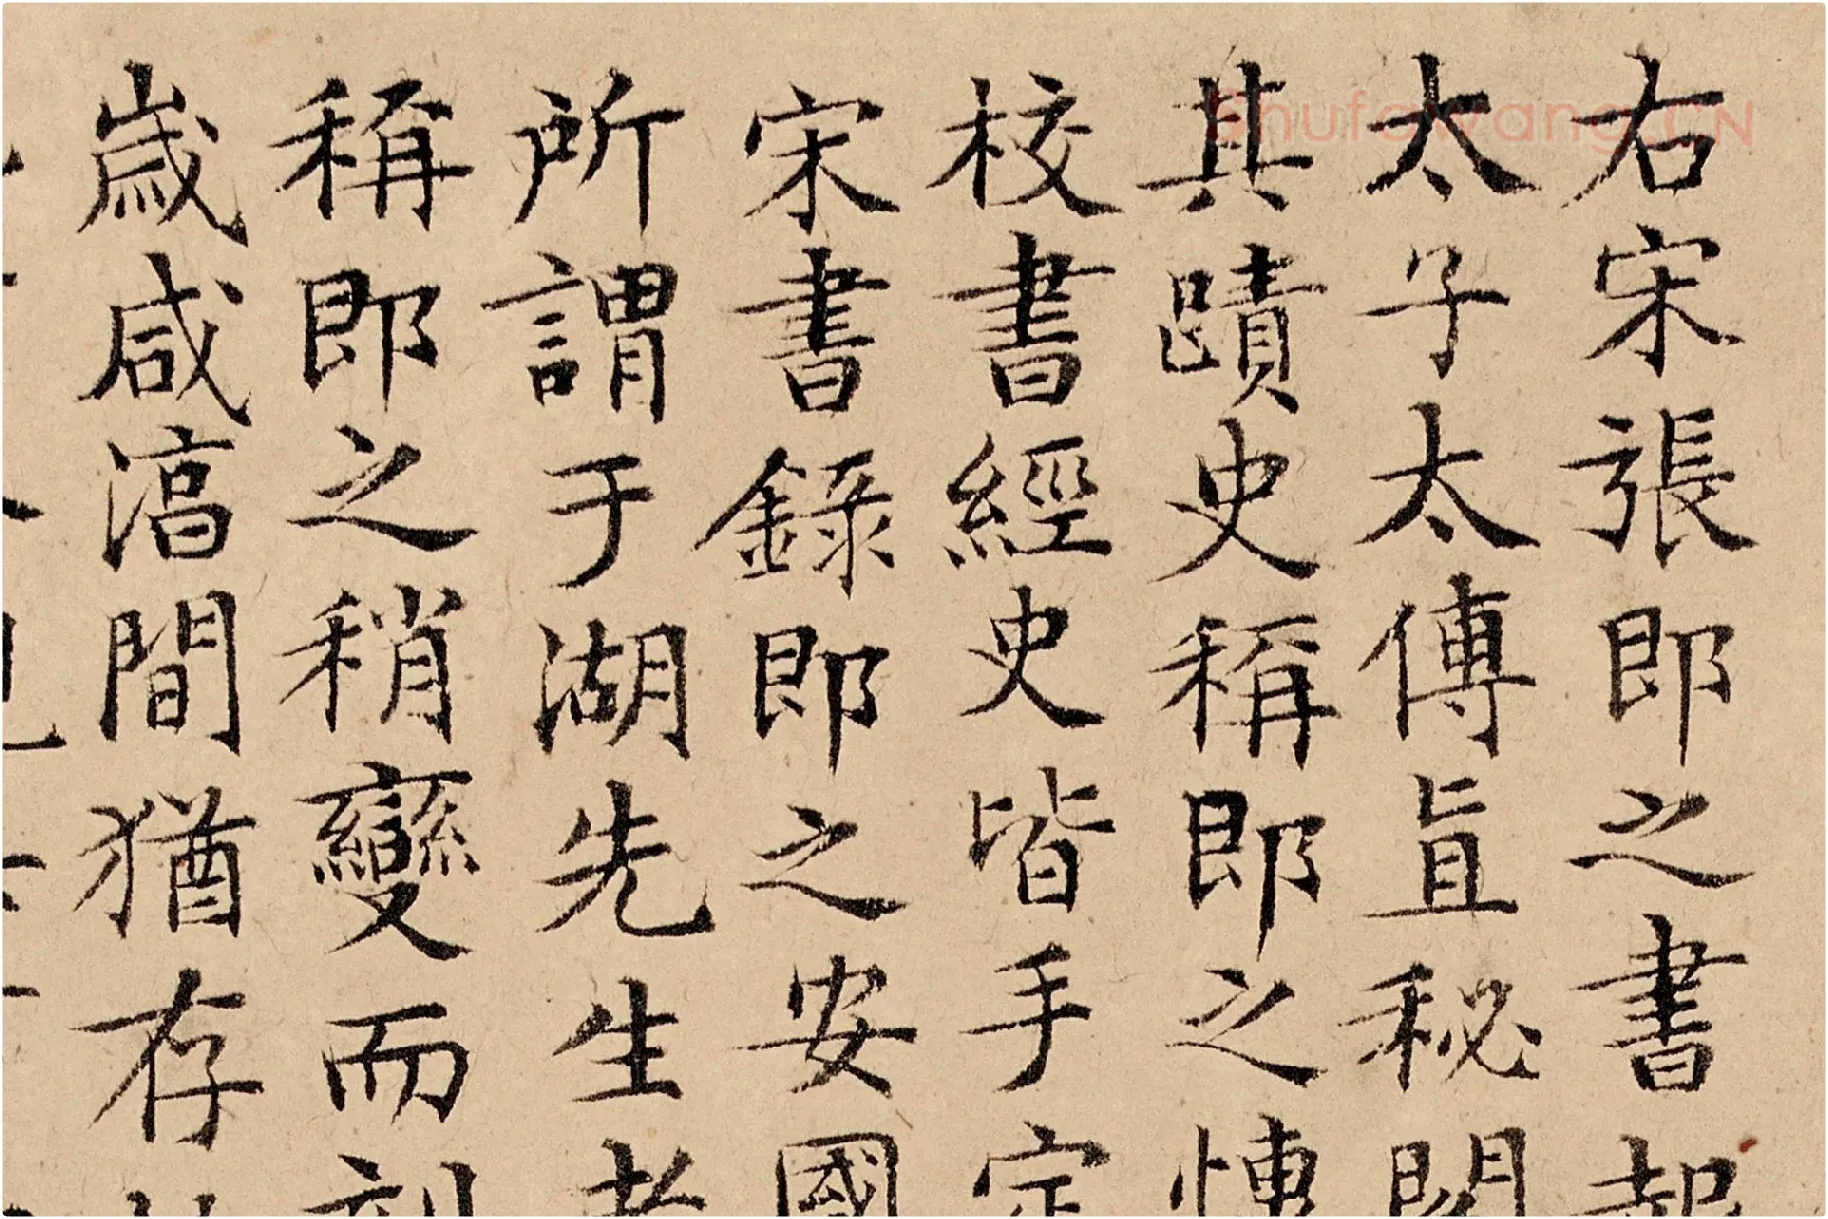 右宋張即之書
太子太傅直秘
其蹟史稱即之
校書經史皆手定
宋書錄即之安國
所謂于湖先生
稱即之稍變而刻
歲咸淳間猶存
Shufawang.CN